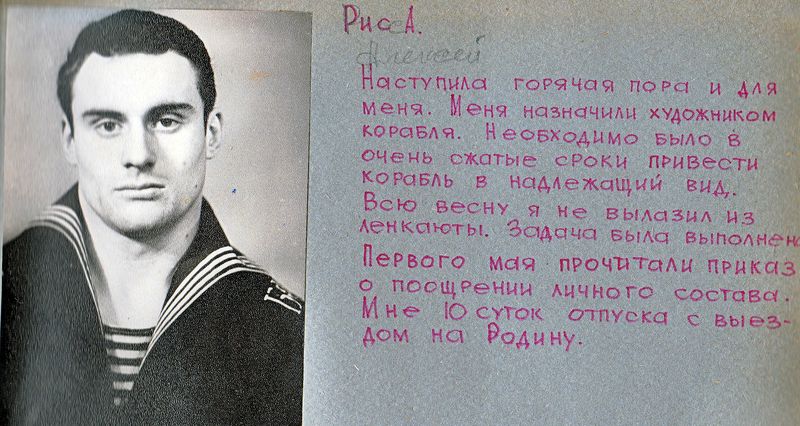 Рис А.
Алексей
Наступила горячая пора и для
меня. Меня назначили художником
корабля. Необходимо было в
очень сжатые сроки привести
корабль в надлежащий вид.
Всю весну я не вылазил из
ленкаюты. Задача была выполнена
Первого мая прочитали приказ
о поощрении личного состава.
Мне 10 суток отпуска с выез-
дом на Родину.